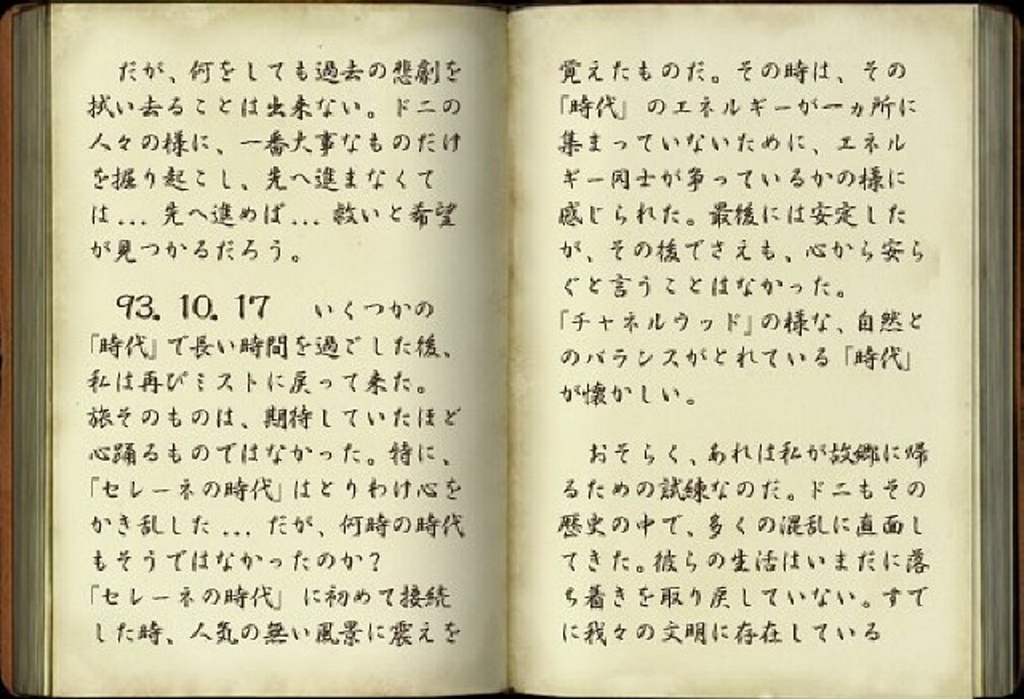 だが、何をしても過去の悲劇を
拭い去ることは出来ない。ドニの
人々の様に、一番大事なものだけ
を掘り起こし、先へ進まなくて
は... 先へ進めば... 救いと希望
が見つかるだろう。
93. 10. 17 いくつかの
「時代」で長い時間を過ごした後、
私は再びミストに戻って来た。
旅そのものは、期待していたほど
心踊るものではなかった。特に、
「セレーネの時代」はとりわけ心を
かき乱した... だが、何時の時代
もそうではなかったのか?
「セレーネの時代」に初めて接続
した時、人気の無い風景に震えを
覚えたものだ。その時は、その
「時代」のエネルギーが一ヵ所に
集まっていないために、エネル
ギー同士が争っているかの様に
感じられた。最後には安定した
が、その後でさえも、心から安ら
ぐと言うことはなかった。
「チャネルウッド」の様な、自然と
のバランスがとれている「時代」
が懐かしい。
おそらく、あれは私が故郷に帰
るための試練なのだ。ドニもその
歴史の中で、多くの混乱に直面し
てきた。彼らの生活はいまだに落
ち着きを取り戻していない。すで
に我々の文明に存在している